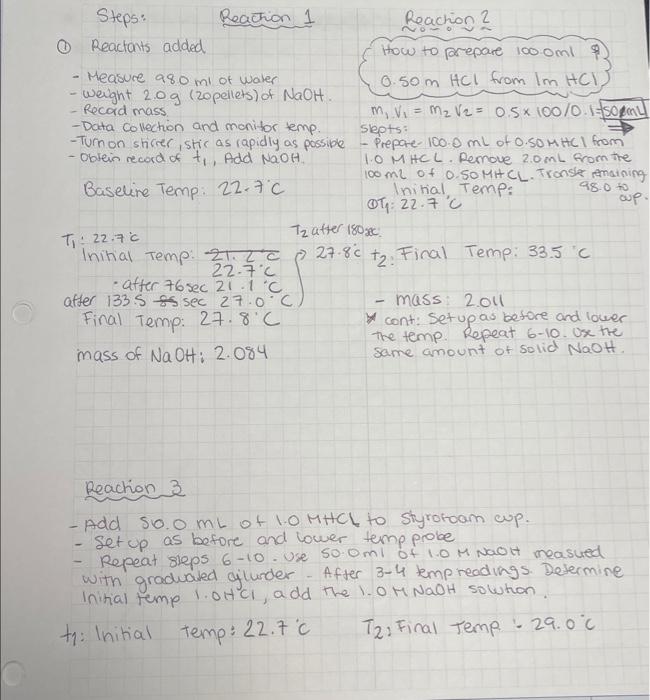 Steps: Reaction 1
① Reactants added
- Measure 98.0 ml of water
- weight 2.0g (20 pellets) of NaOH.
- Record mass
- Data collection and monitor temp.
- Turn on stirrer, stir as rapidly as possible
- Obtein record of t1, Add NaOH.
Baseline Temp: 22.7°C
T1: 22.7°C
Initial Temp: 21.2°C
22.7°C
· after 76 sec 21.1°C
after 133 S 85 sec 27.0°C
Final Temp: 27.8°C
T2 after 180 sec
27.8°C
mass of NaOH: 2.084
Reaction 2
How to prepare 100.0ml of
0.50m HCl from 1m HCl
m1 V1 = m2 V2 = 0.5 x 100/0.1 = 50ml
Stepts:
- Prepare 100.0 mL of 0.50 M HCl from
1.0 M HCL. Remove 2.0mL from the
100 mL of 0.50 M HCL. Transfer remaining
98.0 to cup.
Initial Temp:
①T1: 22.7°C
t2: Final Temp: 33.5°C
- mass: 2.011
* cont: Set up as before and lower
the temp. Repeat 6-10. Use the
same amount of solid NaOH.
Reaction 3
- Add 50.0 mL of 1.0 M HCL to Styrofoam cup.
- Set up as before and lower temp probe
- Repeat steps 6-10. Use 50.0ml of 1.0 M NaOH measued
with graduated cylinder - After 3-4 temp readings. Determine
Initial temp 1.0 HCl, add the 1.0 M NaOH solution.
t1: Initial temp: 22.7°C T2: Final Temp: 29.0°C